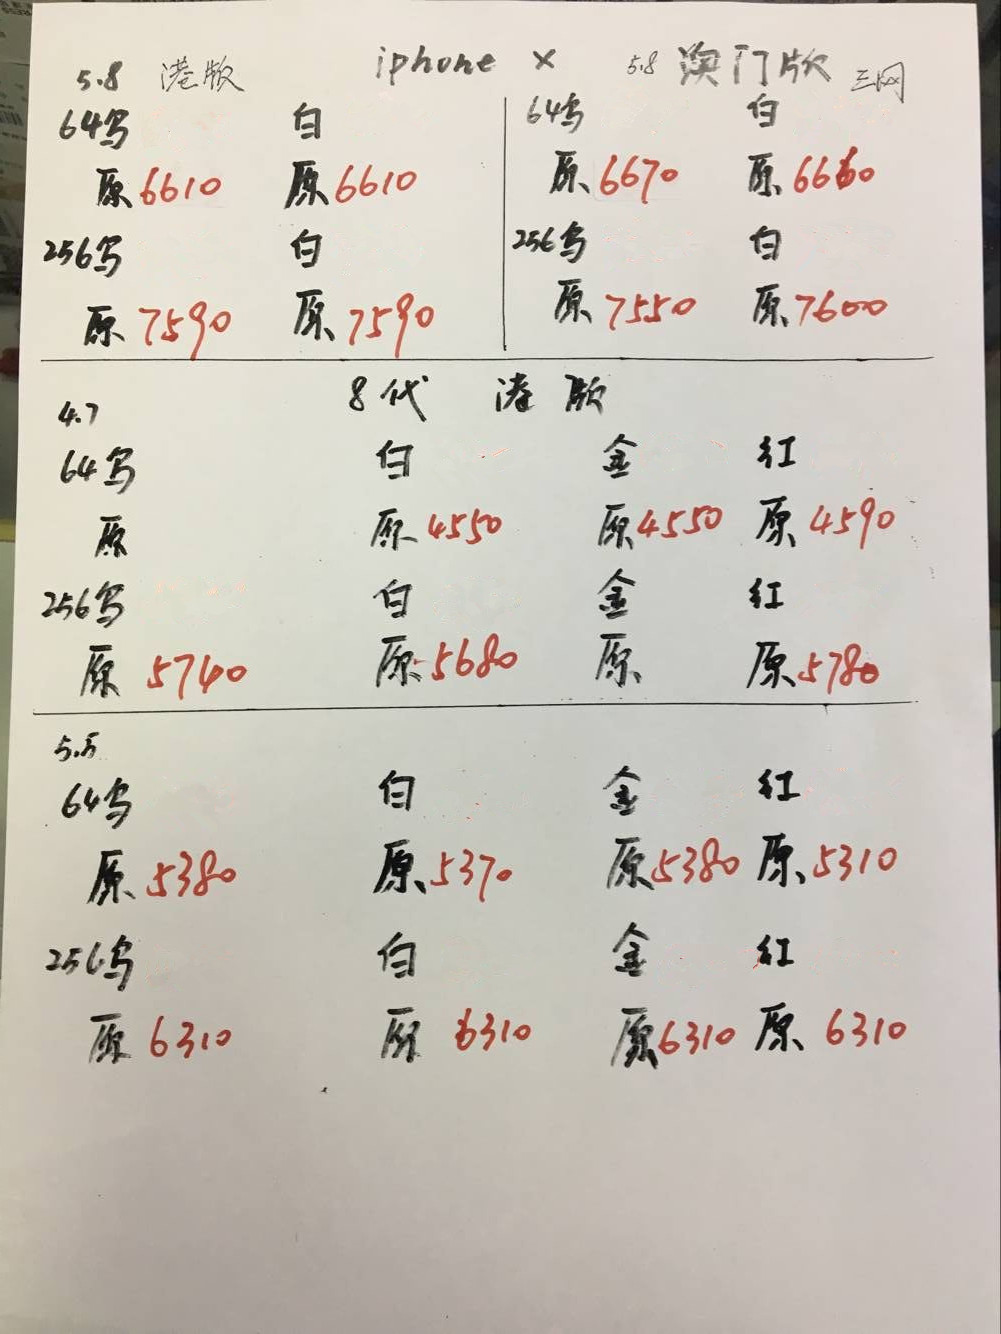 5.8 港版 iphone X 5.8 澳门版 三网
64乌 白 64乌 白
原 6610 原 6610 原 6670 原 6660
256乌 白 256乌 白
原 7590 原 7590 原 7550 原 7600
8代 港版
4.7
64乌 白 金 红
原 原 4550 原 4550 原 4590
256乌 白 金 红
原 5740 原 5680 原 原 5780
5.5
64乌 白 金 红
原 5380 原 5370 原 5380 原 5310
256乌 白 金 红
原 6310 原 6310 原 6310 原 6310